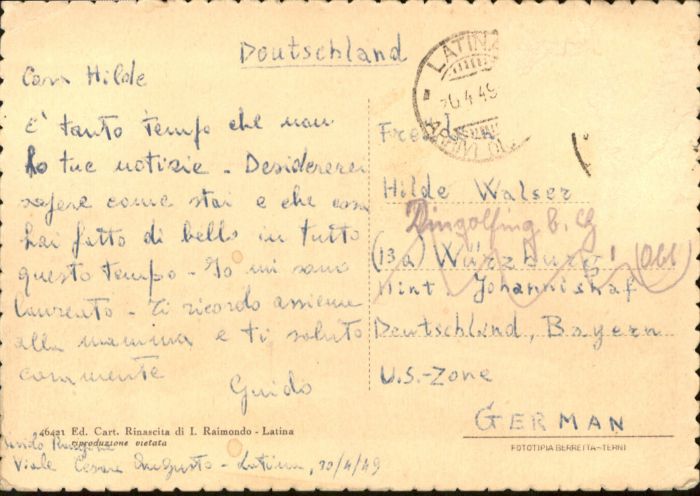 Deutschland
Cara Hilde
È tanto tempo che non
ho tue notizie - Desidererei
sapere come stai e che cosa
hai fatto di bello in tutto
questo tempo - Io mi sono
laureato - Ti ricordo assieme
alla mamma e ti saluto
caramente
Guido
46421 Ed. Cart. Rinascita di I. Raimondo - Latina
riproduzione vietata
Viale Cesare Augusto - Latina, 20/4/49
LATINA
20.4.49
ARRIVI
Hilde Walser
Dingolfing b.
(13a) Würzburg
Hint. Johannishof
Deutschland, Bayern
U.S.-Zone
GERMAN
FOTOTIPIA BERRETTA-TERNI